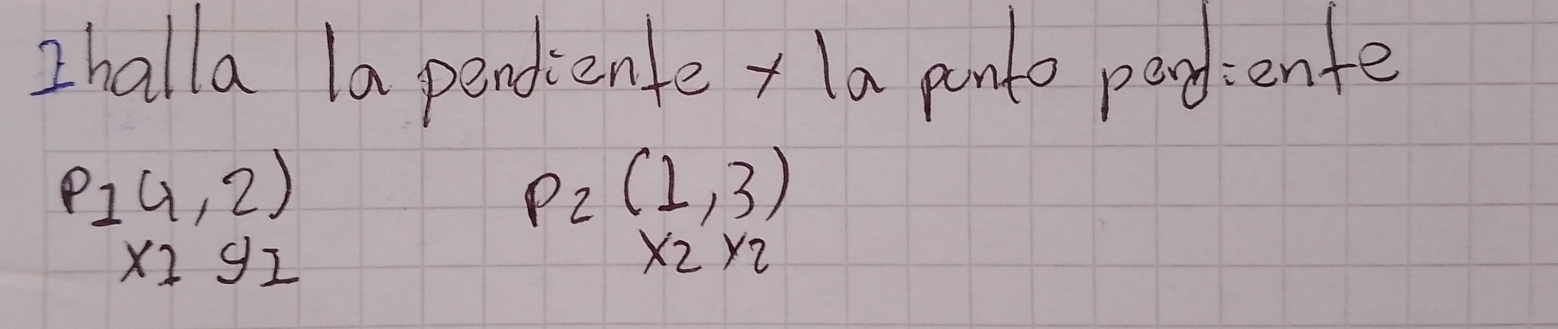 1 halla la pendiente y la punto pendiente
P1 4, 2) P2 (1, 3)
x1 y1 x2 y2